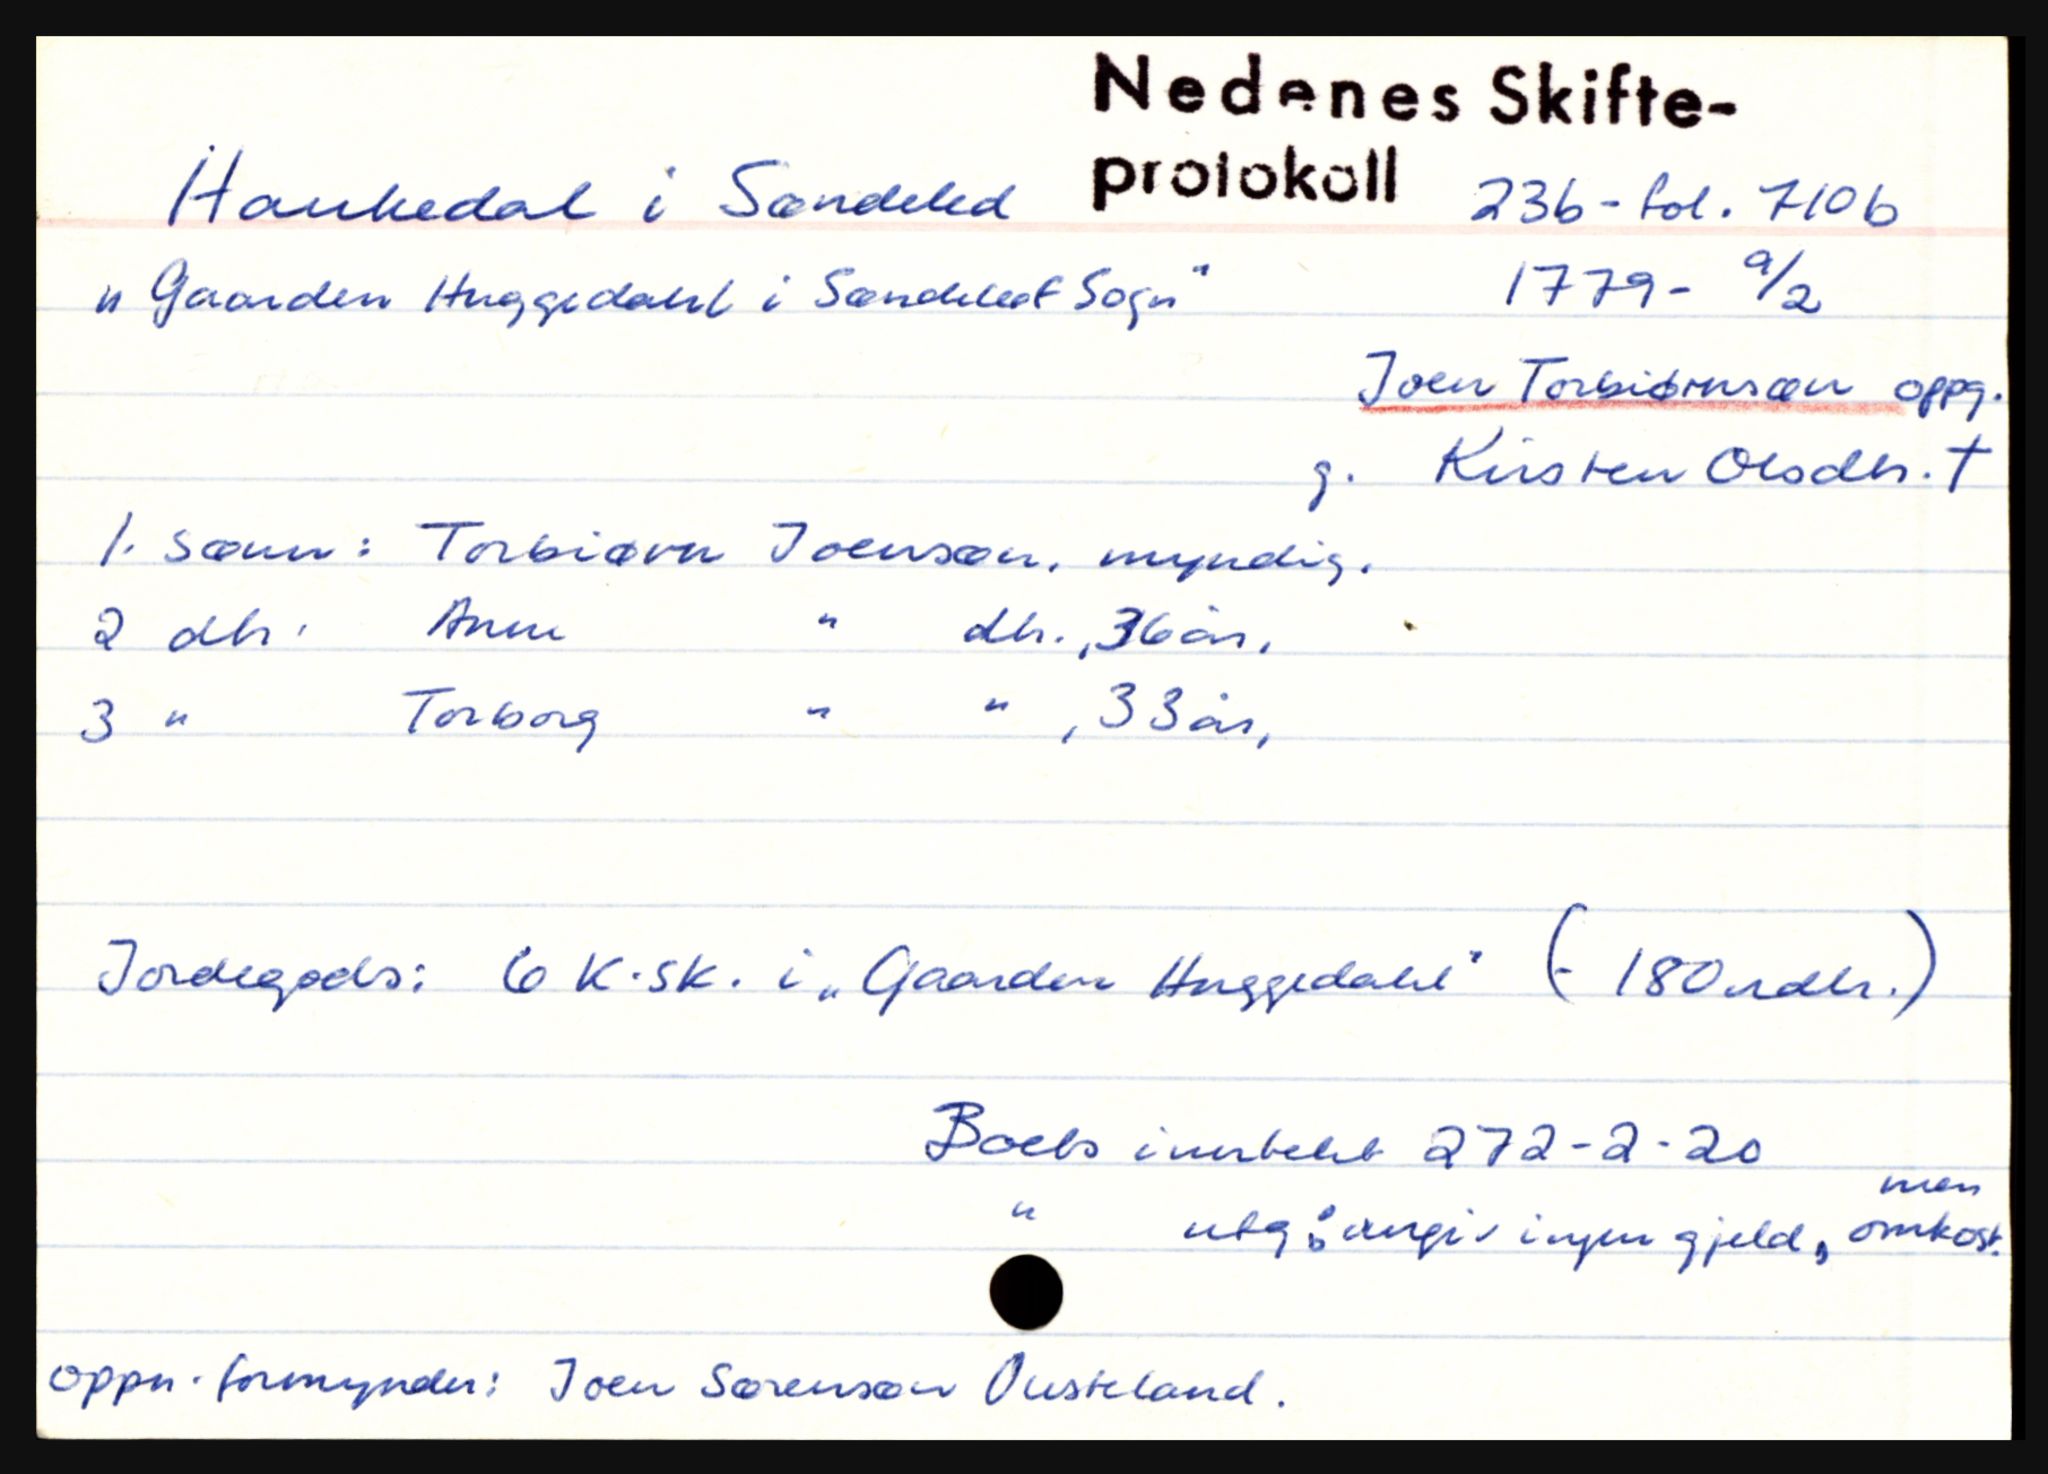 Nedenes Skifte-
protokoll
Haukedal i Søndeled 23b - fol. 710b
"Gaarden Huggedahl i Søndeled Sogn" 1779 - 9/2
Joen Torbiørnsøn oppg.
g. Kirsten Olsdtr. †
1. sønn: Torbiørn Joensøn, myndig.
2 dtr. Anne " dtr., 36 år,
3 " Torborg " ", 33 år,
Jordegods: 6 K.sk. i "Gaarden Huggedahl" (- 180 rdlr.)
Boets innteht 272 - 2 - 20
" utg: angiv ingen gjeld, men omkost.
oppn. formynder: Joen Sørensøn Ousteland.